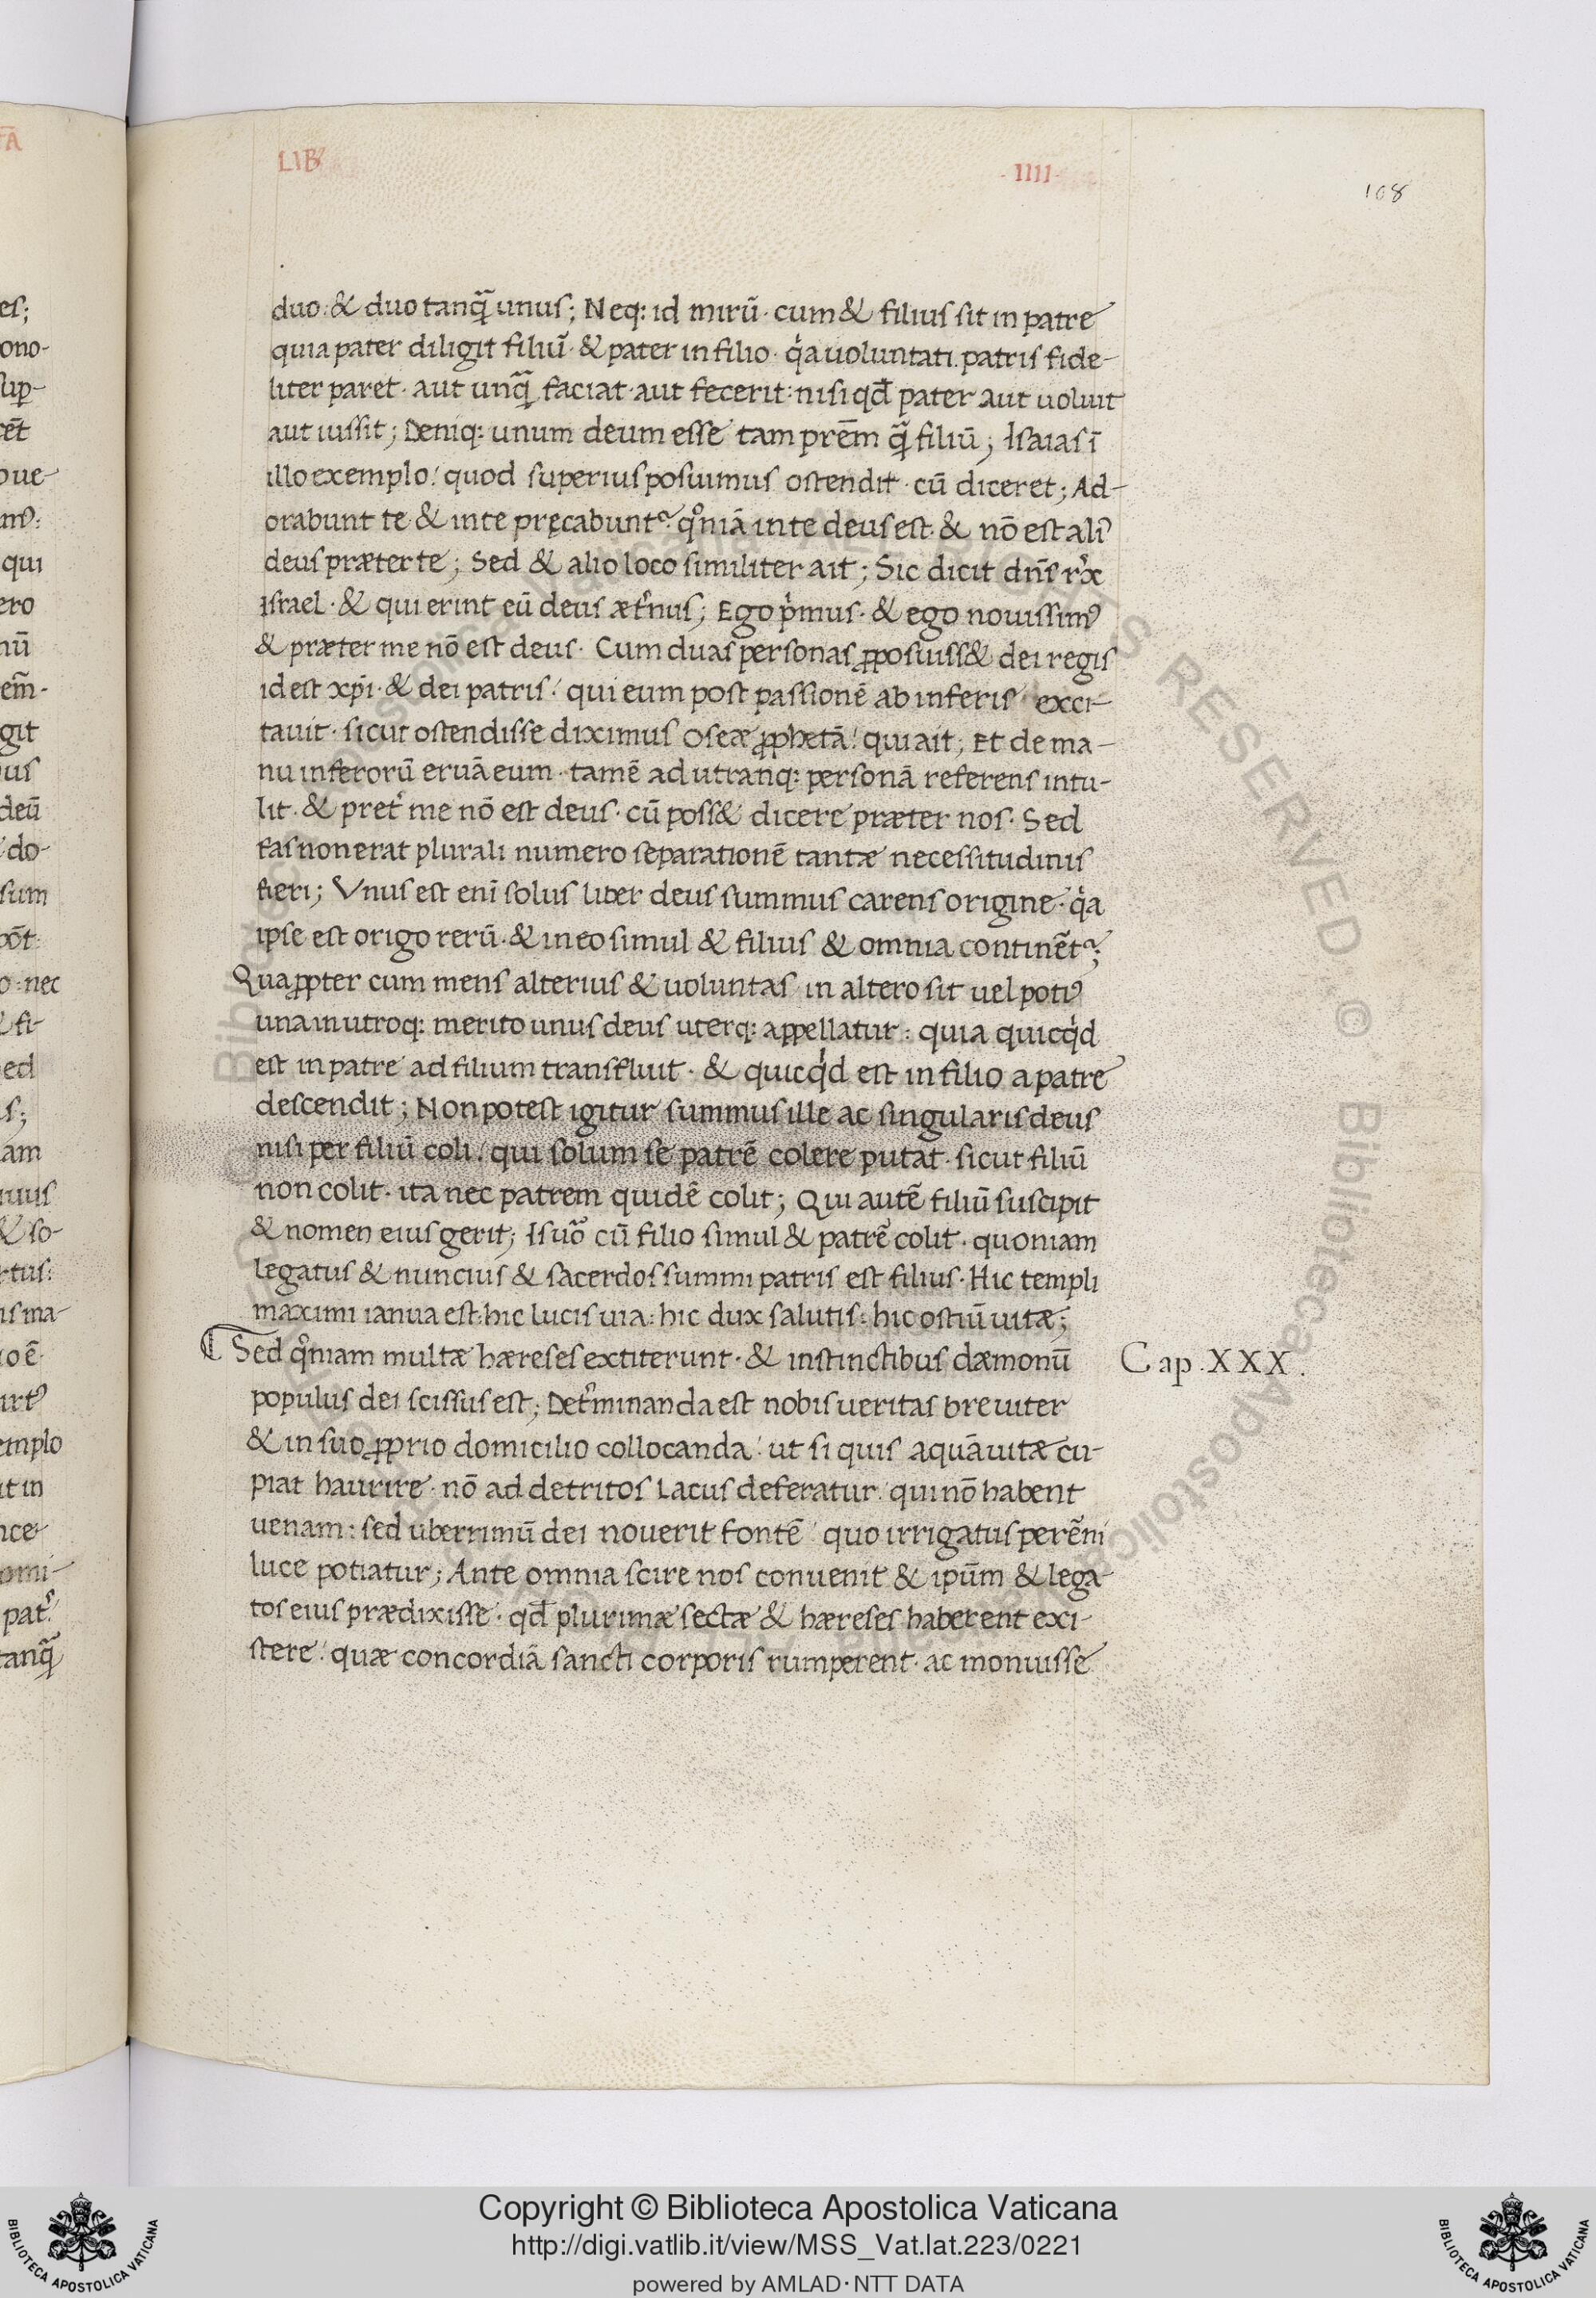 LIB
·IIII·
108
duo: & duo tanq̃ unus; Neq: id mirũ· cum & filius sit in patre
quia pater diligit filiũ· & pater in filio· qͥa uoluntati patris fide-
liter paret· aut unq̃ faciat· aut fecerit: nisi qđ pater aut uoluit
aut iussit; Deniq: unum deum esse tam prẽm q̃ filiũ; Isaias ĩ
illo exemplo: quod superius posuimus ostendit· cũ diceret; Ad-
orabunt te & in te pręcabuntᷣ qͦniã in te deus est· & nõ est aliꝰ
deus præter te; Sed & alio loco similiter ait; Sic dicit dñs rͤx
israel· & qui erint eũ deus ætͤnus; Ego pͥmus· & ego nouissimꝰ
& præter me nõ est deus· Cum duas personas ꝓposuiss& dei regis
id est xp̃i· & dei patris: qui eum post passionẽ ab inferis exci-
tauit· sicut ostendisse diximus Oseæ ꝓphetã: qui ait; Et de ma-
nu inferorũ eruã eum· tamẽ ad utranq: personã referens intu-
lit· & pretͤ me nõ est deus· cũ poss& dicere præter nos· Sed
fas non erat plurali numero separationẽ tantæ necessitudinis
fieri; Vnus est enĩ solus liber deus summus carens origine· qͥa
ipse est origo rerũ· & in eo simul & filius & omnia continẽtᷣ;
Quaꝓpter cum mens alterius & uoluntas in altero sit uel potiꝰ
una in utroq: merito unus deus uterq: appellatur: quia quicqͥd
est in patre ad filium transfluit· & quicqͥd est in filio a patre
descendit; Non potest igitur summus ille ac singularis deus
nisi per filiũ coli: qui solum se patrẽ colere putat· sicut filiũ
non colit· ita nec patrem quidẽ colit; Qui autẽ filiũ suscipit
& nomen eius gerit; Is uõ cũ filio simul & patrẽ colit· quoniam
legatus & nuncius & sacerdos summi patris est filius· Hic templi
maximi ianua est: hic lucis uia: hic dux salutis: hic ostiũ uitæ;
Sed qͦniam multæ hæreses extiterunt· & instinctibus dæmonũ
Cap. XXX.
populus dei scissus est; Detͤminanda est nobis ueritas breuiter
& in suo ꝓprio domicilio collocanda: ut si quis aquã uitæ cu-
piat haurire· nõ ad detritos lacus deferatur: qui nõ habent
uenam: sed uberrimũ dei nouerit fontẽ quo irrigatus perẽni
luce potiatur; Ante omnia scire nos conuenit & ipũm & lega-
tos eius prædixisse· qđ plurimæ sectæ & hæreses haberent exi-
stere: quæ concordiã sancti corporis rumperent· ac monuisse
Copyright © Biblioteca Apostolica Vaticana
http://digi.vatlib.it/view/MSS_Vat.lat.223/0221
powered by AMLAD·NTT DATA